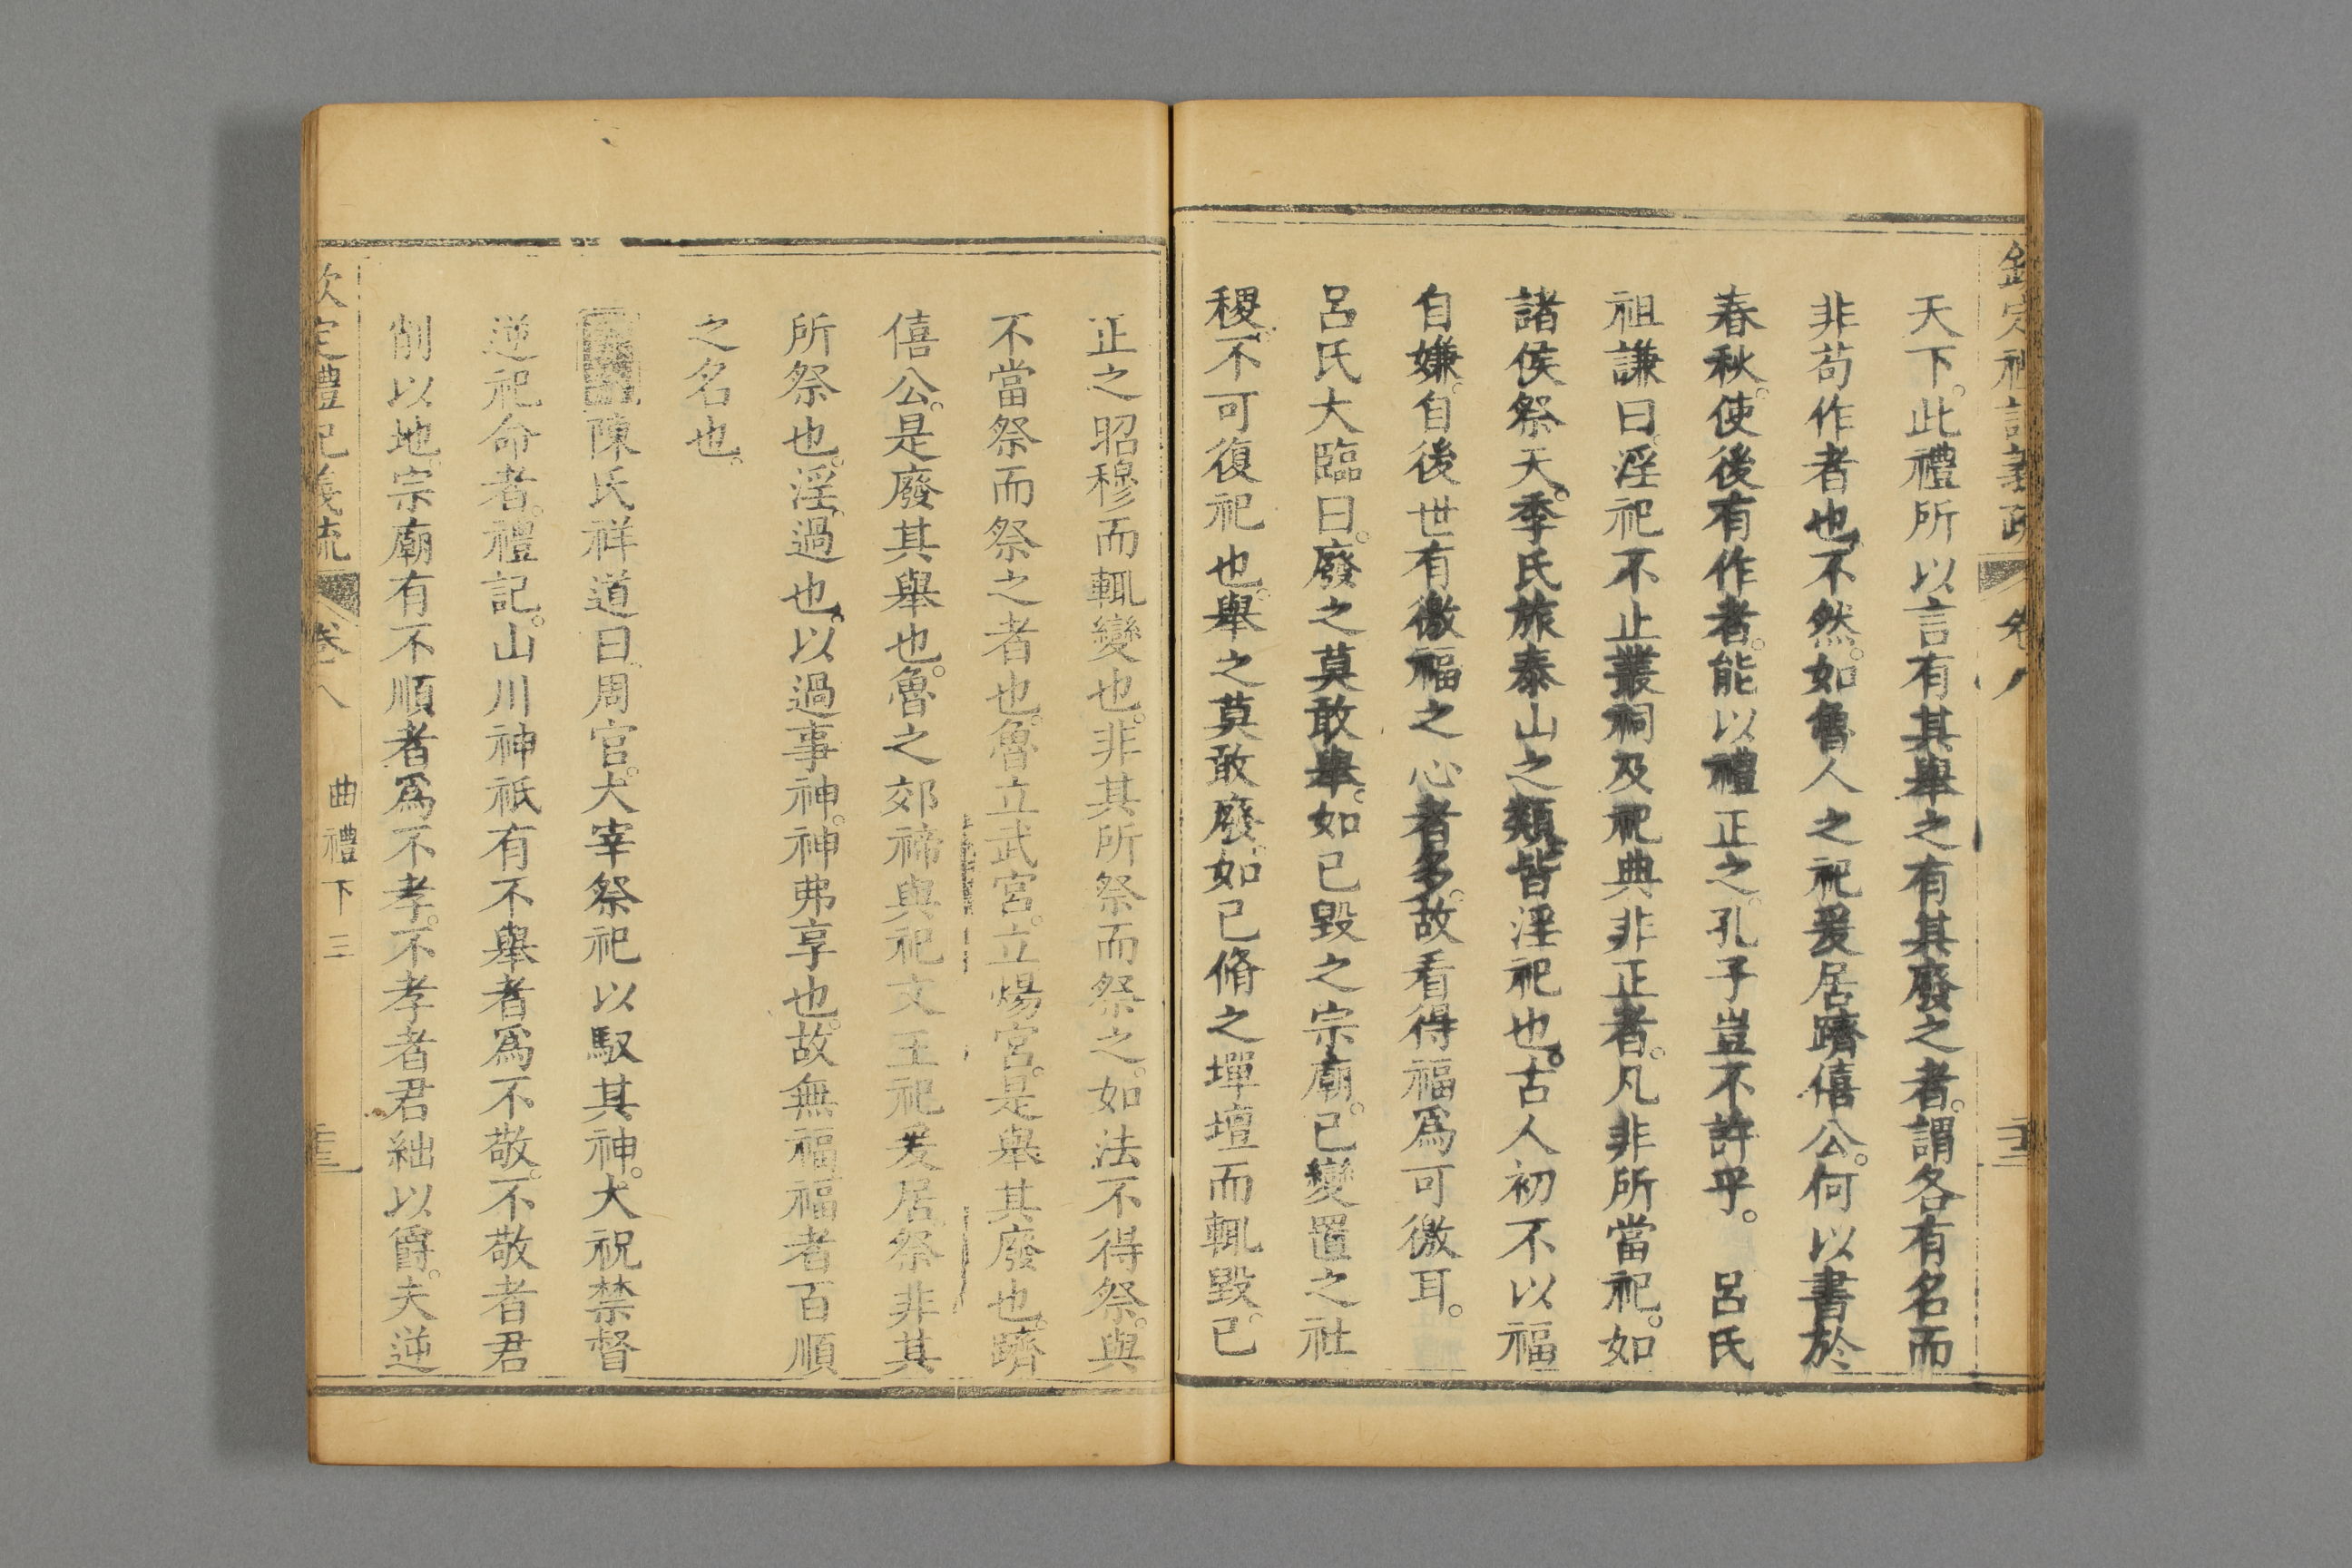 天下。此禮所以言有其舉之有其廢之者。謂各有名而
非苟作者也。不然。如魯人之祀爰居躋僖公。何以書於
春秋。使後有作者。能以禮正之。孔子豈不許乎。　呂氏
祖謙曰。淫祀不止叢祠及祀典非正者。凡非所當祀。如
諸侯祭天。季氏旅泰山之類皆淫祀也。古人初不以福
自嫌。自後世有徼福之心者多。故看得福爲可徼耳。
呂氏大臨曰。廢之莫敢舉。如已毀之宗廟。已變置之社
稷。不可復祀也。舉之莫敢廢。如已脩之墠壇而輒毀。已
正之昭穆而輒變也。非其所祭而祭之。如法不得祭。與
不當祭而祭之者也。魯立武宮。立煬宮。是舉其廢也。躋
僖公。是廢其舉也。魯之郊禘與祀文王祀爰居。祭非其
所祭也。淫過也。以過事神。神弗享也。故無福。福者百順
之名也。
陳氏祥道曰。周官。大宰祭祀以馭其神。大祝禁督
逆祀命者。禮記。山川神祇有不舉者爲不敬。不敬者君
削以地。宗廟有不順者爲不孝。不孝者君絀以爵。夫逆
欽定禮記義疏
卷八
曲禮下三